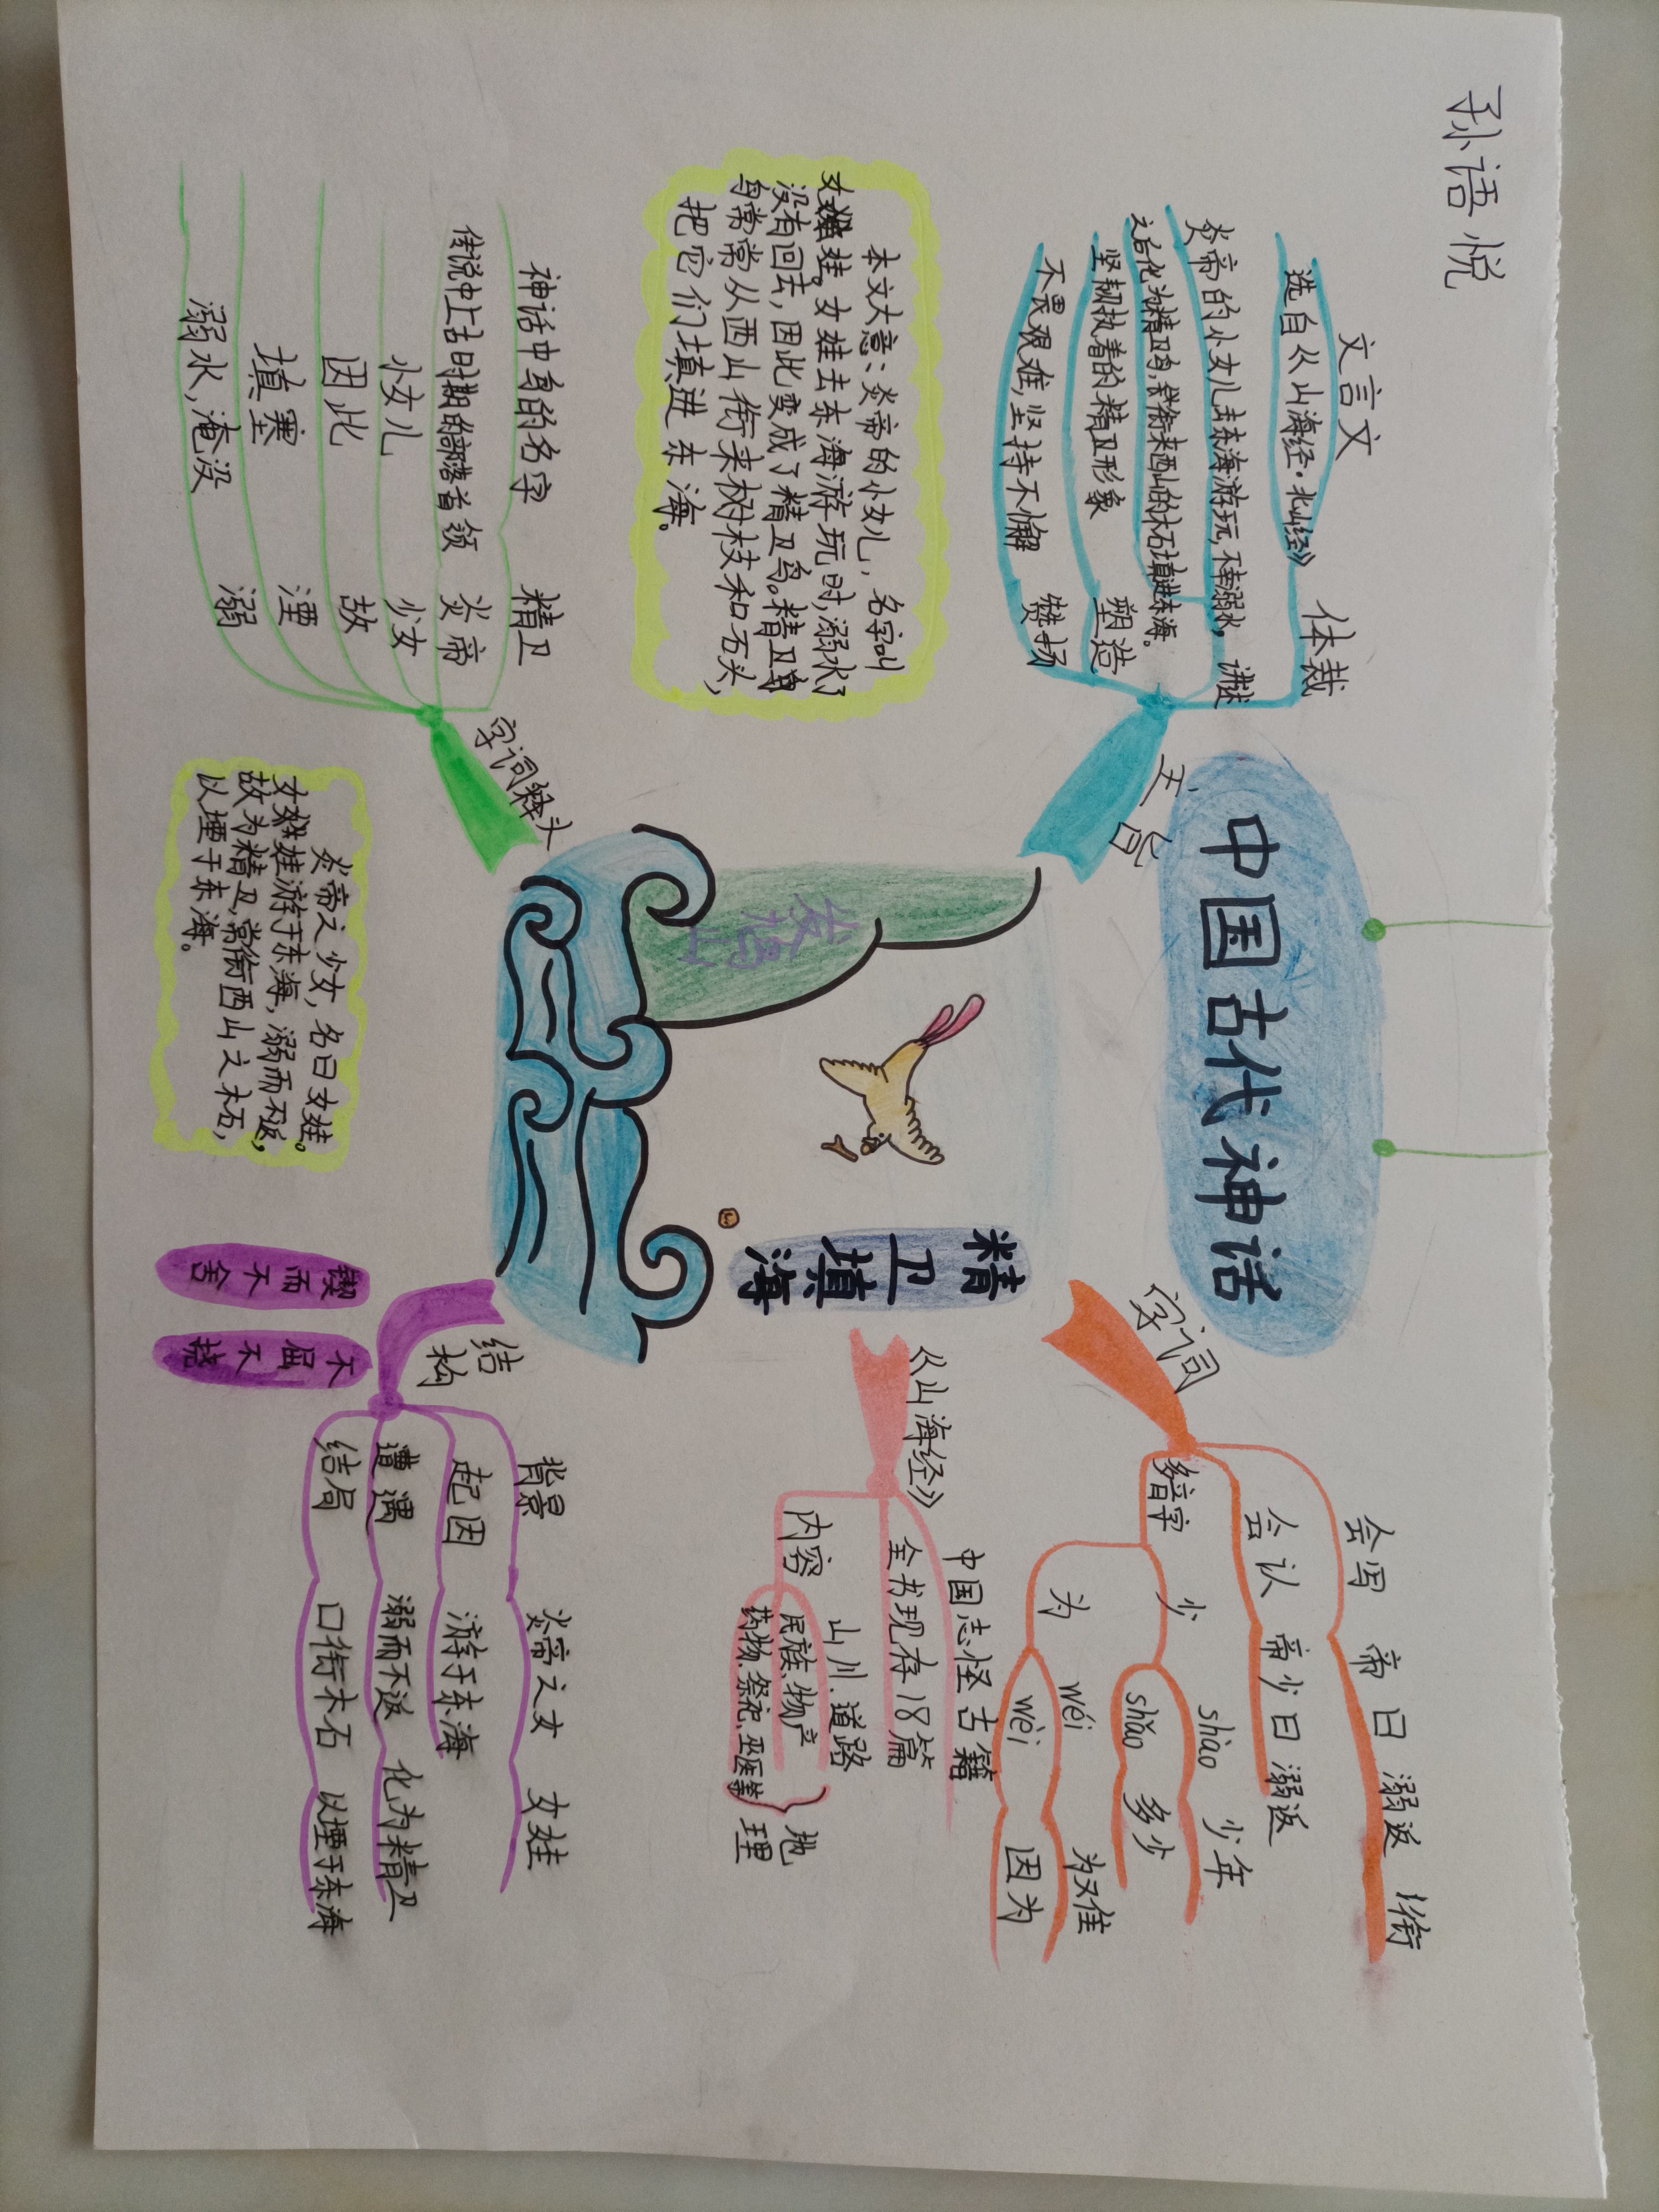 孙语悦
中国古代神话
精卫填海
发鸠山
主旨
体裁
文言文
选自《山海经·北山经》
讲述
炎帝的小女儿去东海游玩,不幸溺水,
之后化为精卫鸟,
塑造
坚韧执着的精卫形象
赞扬
不畏艰难,坚持不懈
本文大意:炎帝的小女儿,名字叫
女娃。女娃去东海游玩时,溺水了
没有回去,因此变成了精卫鸟。精卫鸟
常常从西山衔来树枝和石头,
把它们填进东海。
字词释头
精卫
神话中鸟的名字
炎帝
传说中上古时期的部落首领
少女
小女儿
故
因此
湮
填塞
溺
溺水,淹没
炎帝之少女,名曰女娃。
女娃游于东海,溺而不返,
故为精卫,常衔西山之木石,
以堙于东海。
字词
会写 帝 曰 溺 返 衔
会认 帝 少 曰 溺 返
多音字
少
shào 少年
shǎo 多少
为
wéi 为难
wèi 因为
《山海经》
中国志怪古籍
全书现存18篇
内容
山川、道路
民族、物产
药物、祭祀、巫医等
地理
结构
背景 炎帝之女 女娃
起因 游于东海
遭遇 溺而不返 化为精卫
结局 口衔木石 以堙于东海
锲而不舍
不屈不挠